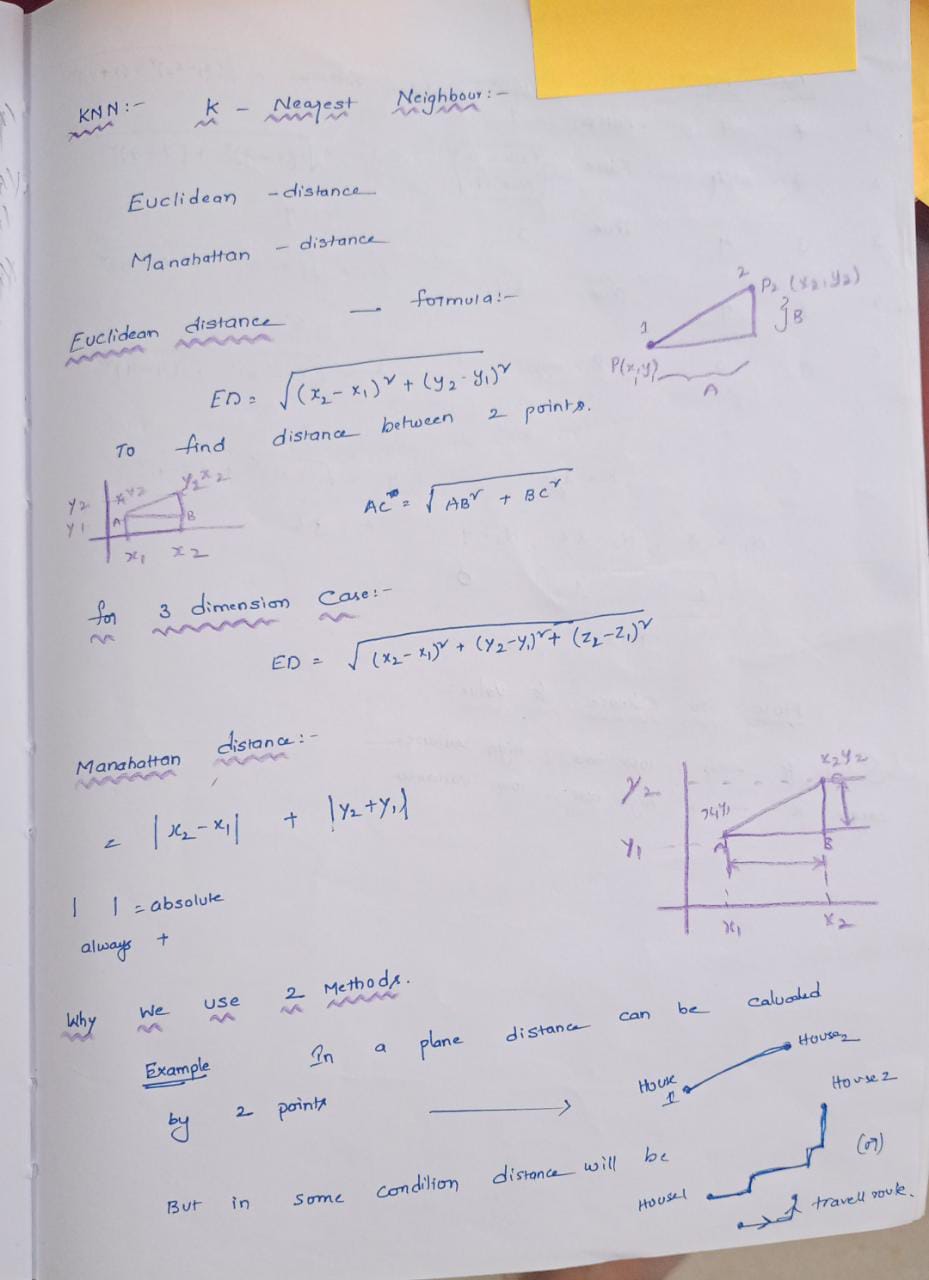 KNN:- K - Nearest Neighbour:-
Euclidean - distance
Manahattan - distance
Euclidean distance — formula:-
1
2
P2 (x2, y2)
B
P(x, y)
A
ED = √(x₂ - x₁)² + (y₂ - y₁)²
To find distance between 2 points.
y2
y1
A
B
x1 x2
AC = √AB² + BC²
for 3 dimension Case:-
ED = √(x₂ - x₁)² + (y₂ - y₁)² + (z₂ - z₁)²
Manahattan distance:-
= |x₂ - x₁| + |y₂ + y₁|
x2y2
y2
x1y1
y1
A
B
x1
x2
| | = absolute
always +
Why We use 2 Methods.
Example In a plane distance can be
by 2 points →
House 1
House2
But in some condition distance will be
House 2
House1
(or)
travell route.